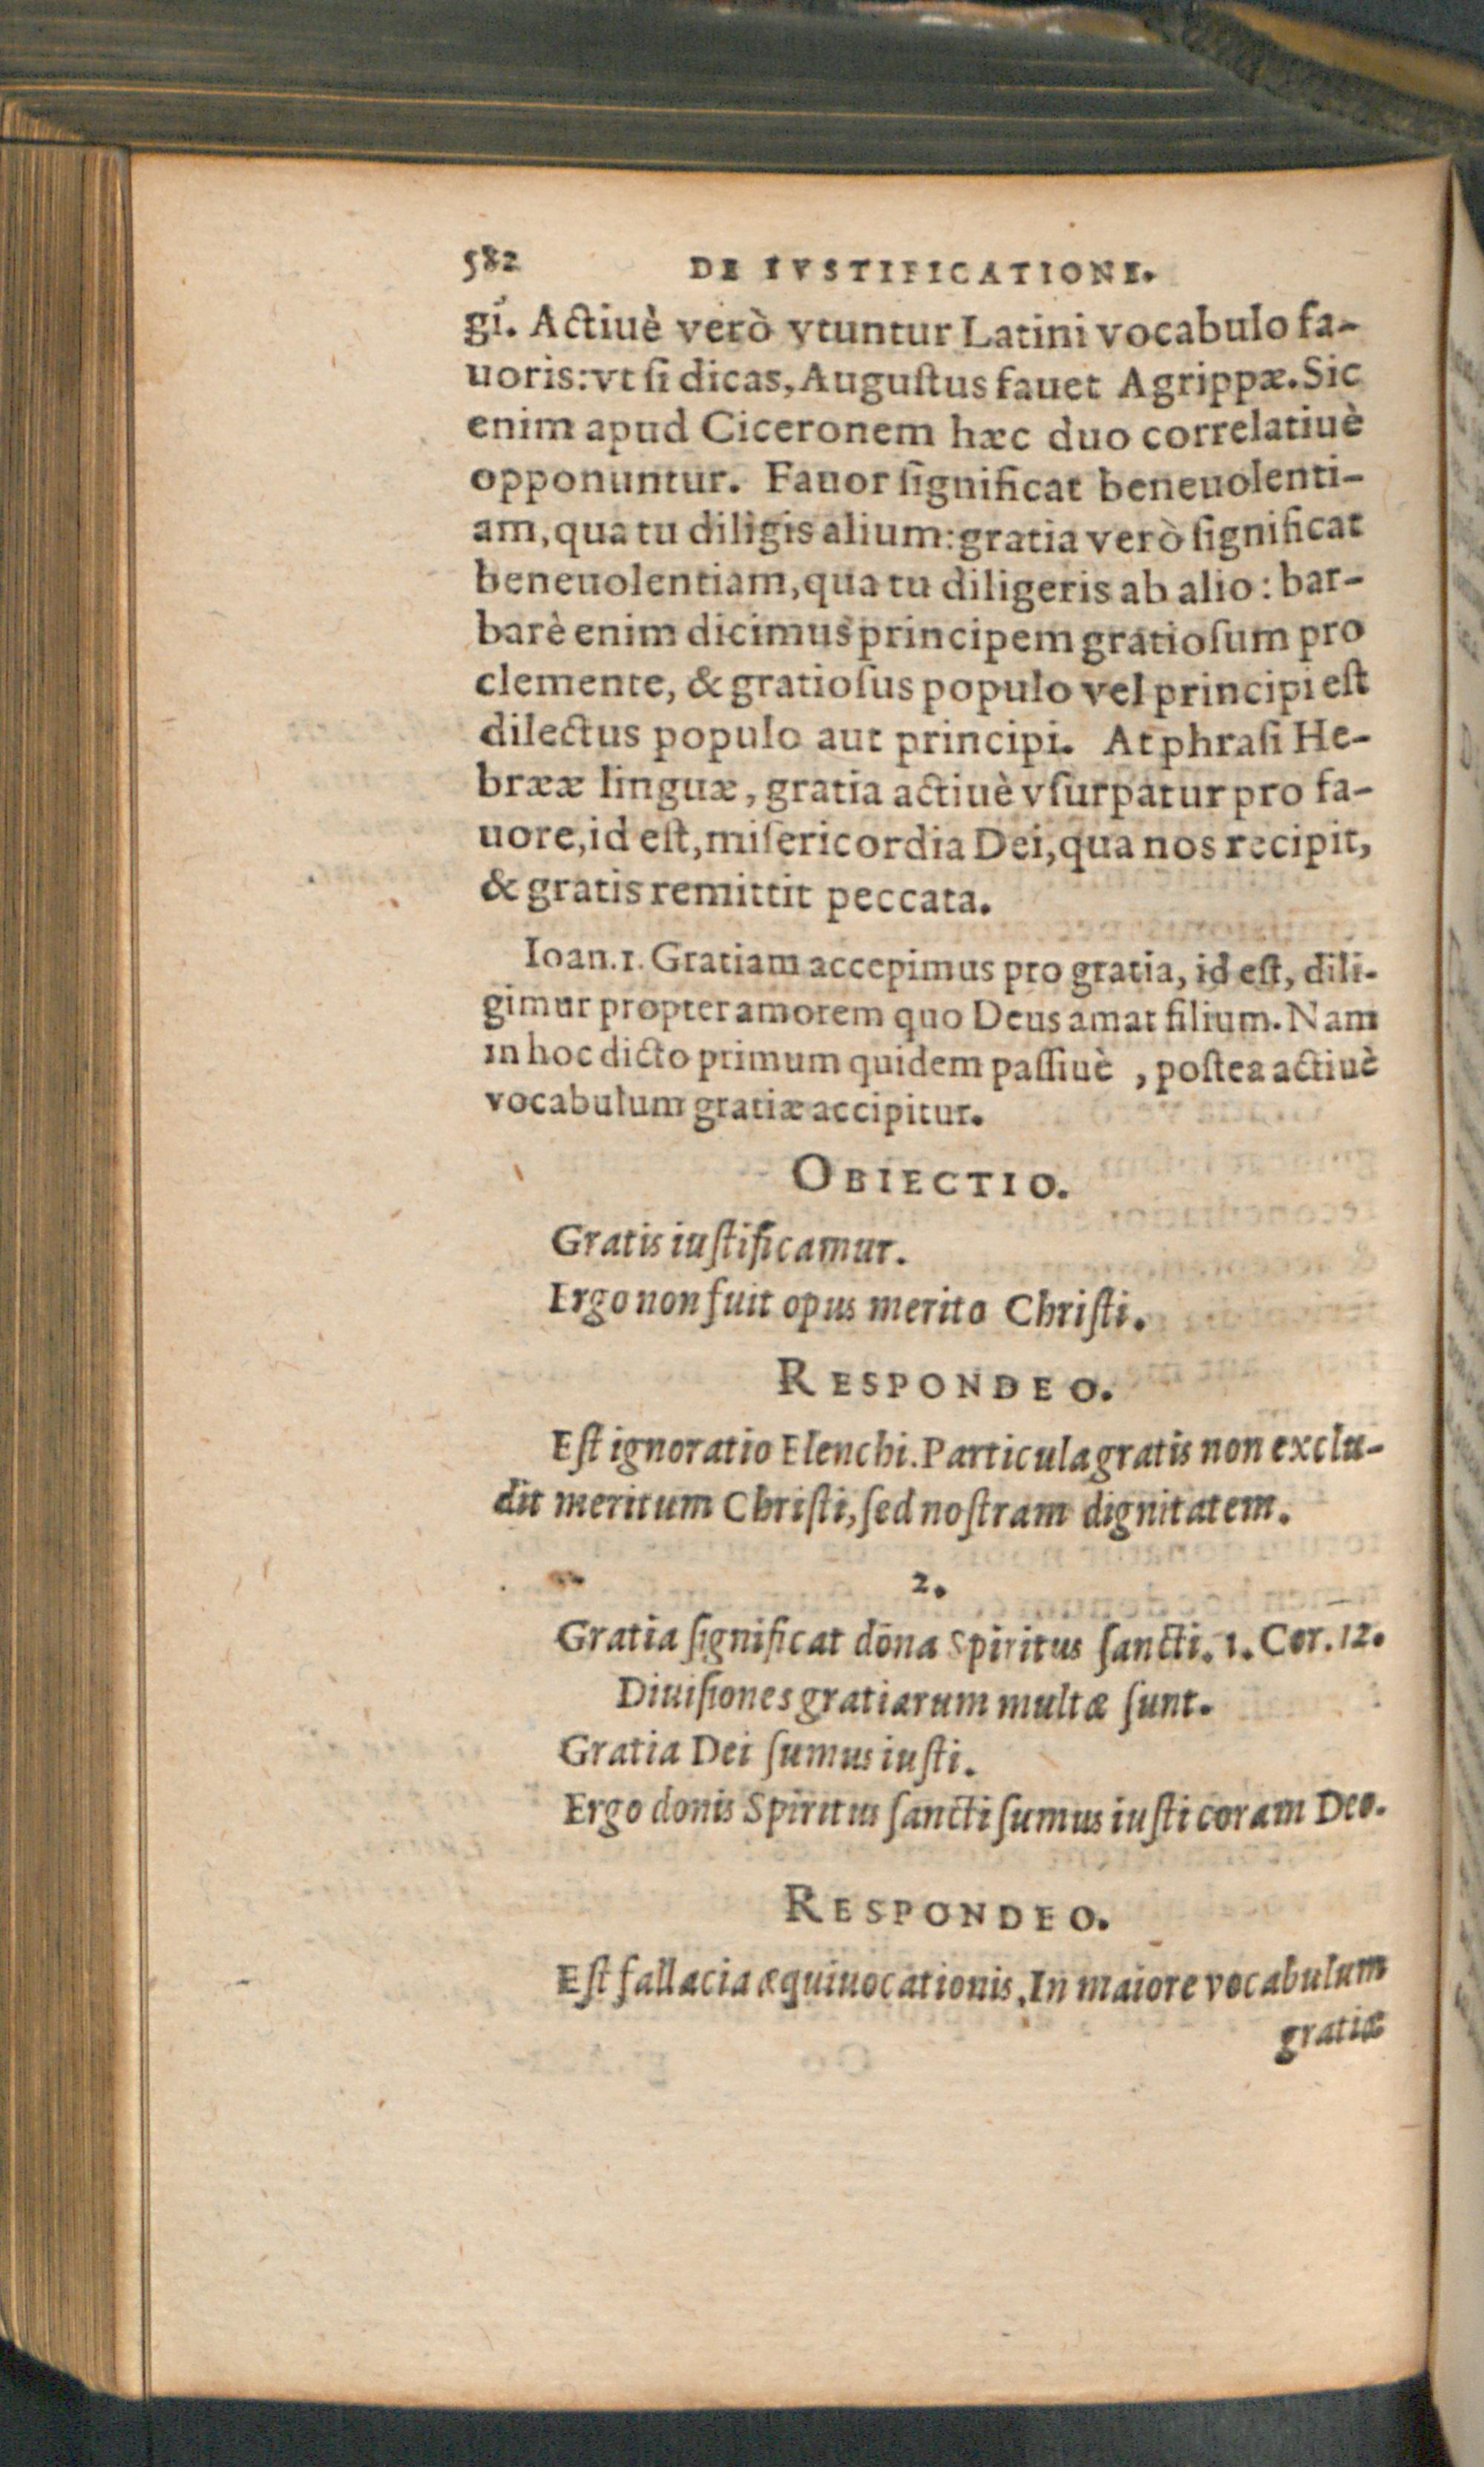 582 DE IVSTIFICATIONE.
gi. Actiuè verò vtuntur Latini vocabulo fa-
uoris: vt ſi dicas, Auguſtus fauet Agrippæ. Sic
enim apud Ciceronem hæc duo correlatiuè
opponuntur. Fauor ſignificat beneuolenti-
am, qua tu diligis alium: gratia verò ſignificat
beneuolentiam, qua tu diligeris ab alio: bar-
barè enim dicimus principem gratioſum pro
clemente, & gratioſus populo vel principi eſt
dilectus populo aut principi. At phraſi He-
brææ linguæ, gratia actiuè vſurpatur pro fa-
uore, id eſt, miſericordia Dei, qua nos recipit,
& gratis remittit peccata.
Ioan. 1. Gratiam accepimus pro gratia, id eſt, dili-
gimur propter amorem quo Deus amat filium. Nam
in hoc dicto primum quidem paſſiuè, poſtea actiuè
vocabulum gratiæ accipitur.
OBIECTIO.
Gratis iuſtificamur.
Ergo non fuit opus merito Chriſti.
RESPONDEO.
Eſt ignoratio Elenchi. Particula gratis non exclu-
dit meritum Chriſti, ſed noſtram dignitatem.
2.
Gratia ſignificat dona Spiritus ſancti. 1. Cor. 12.
Diuiſiones gratiarum multæ ſunt.
Gratia Dei ſumus iuſti.
Ergo donis Spiritus ſancti ſumus iuſti coram Deo.
RESPONDEO.
Eſt fallacia æquiuocationis. In maiore vocabulum
gratiæ